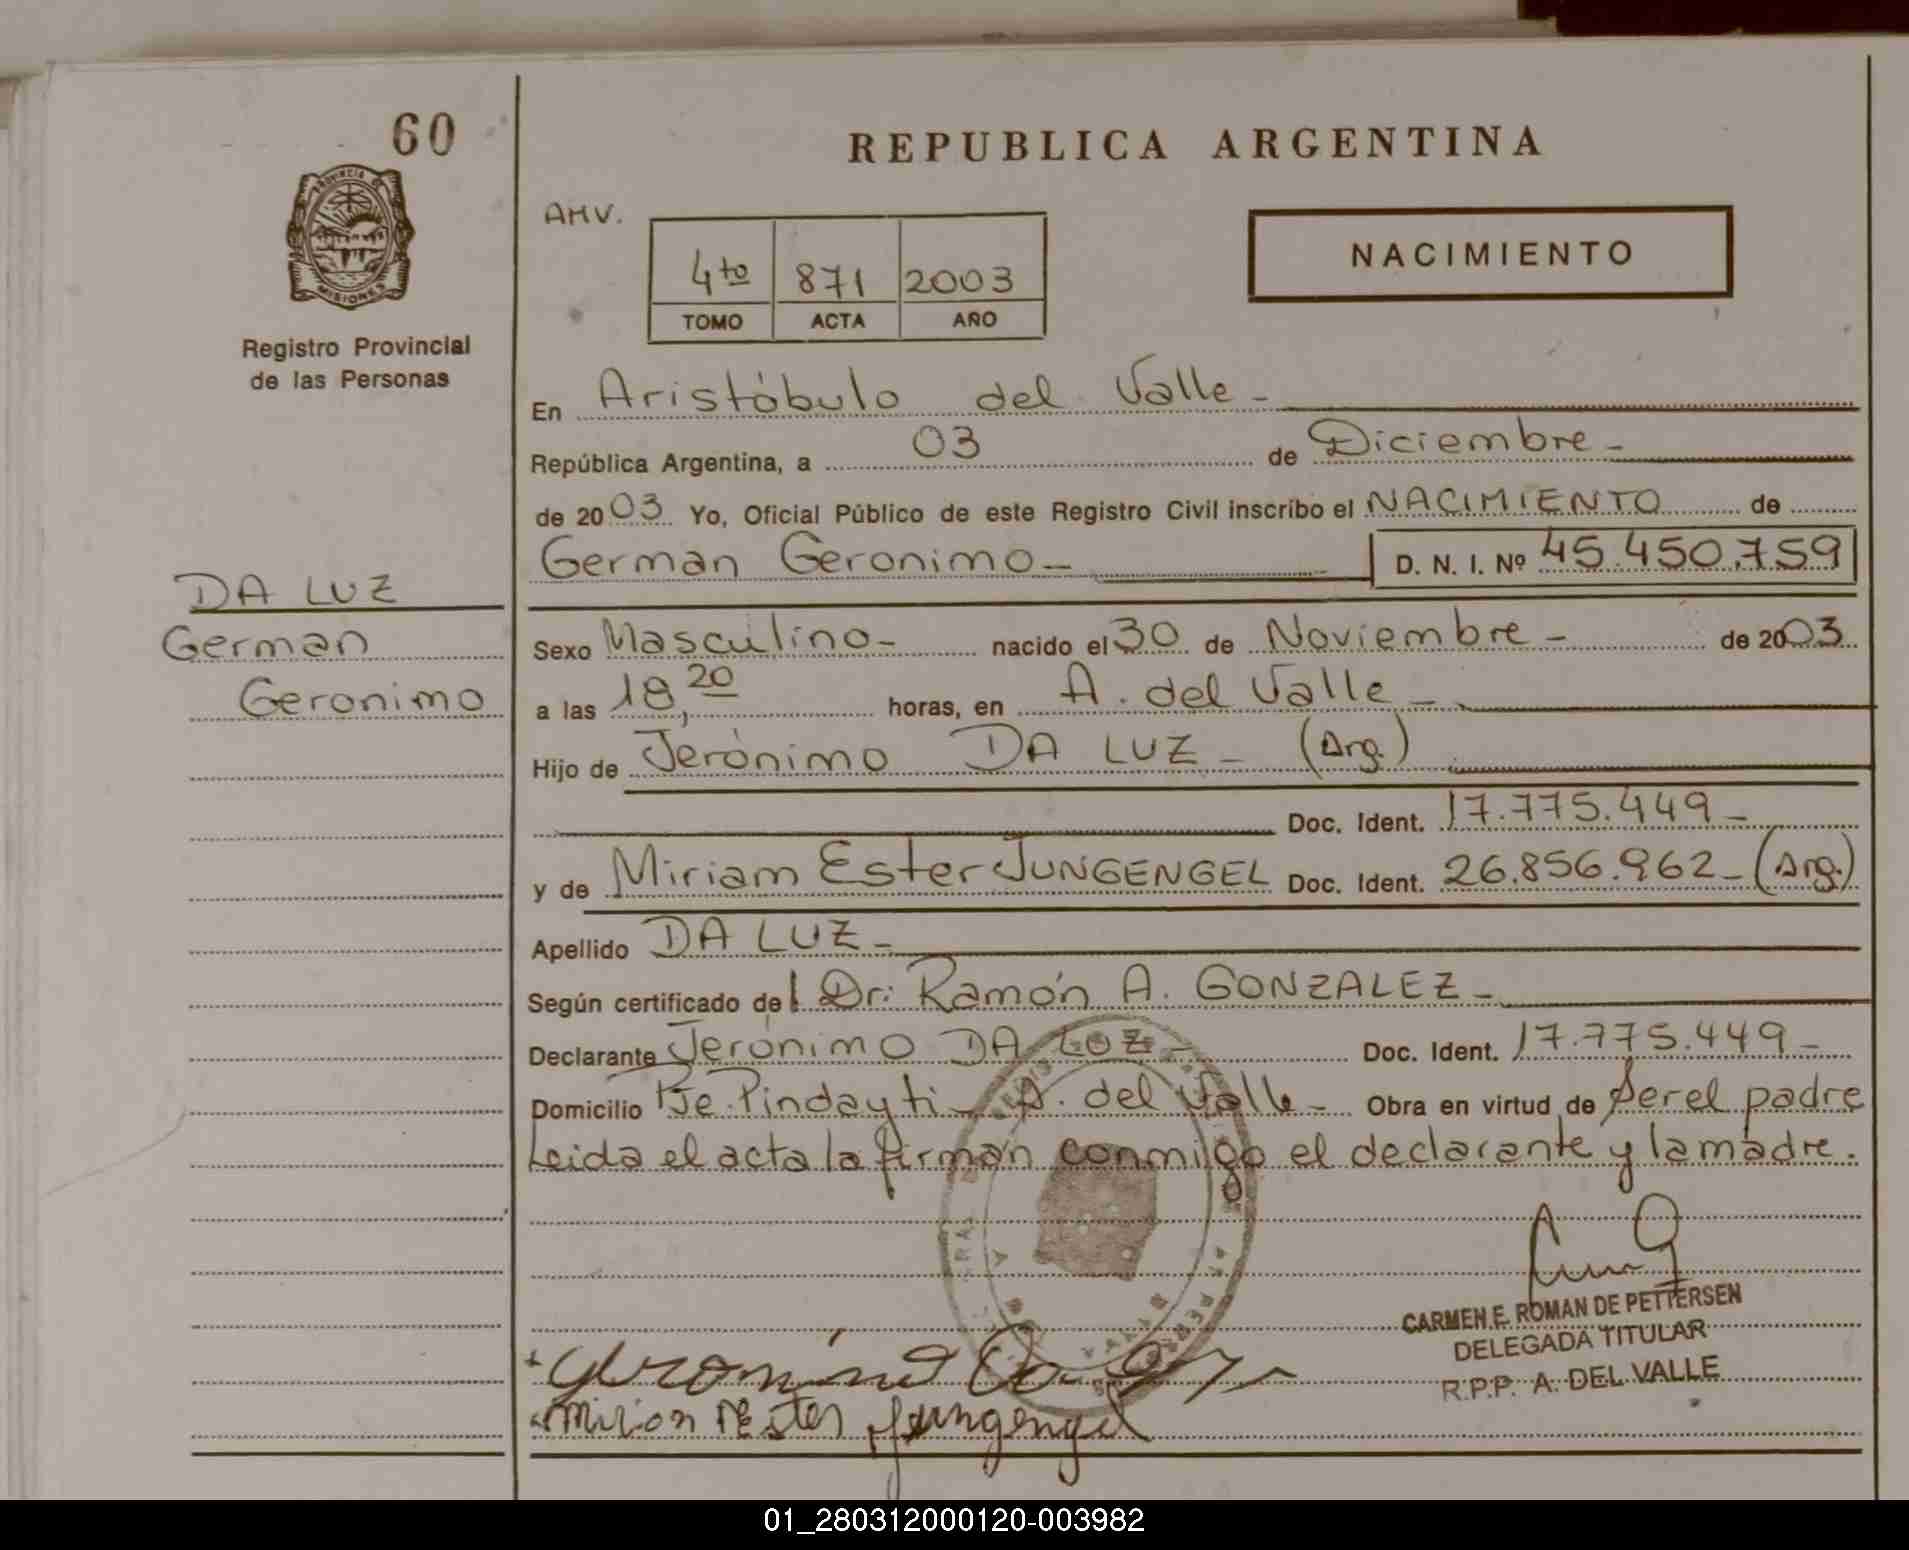 60
PROVINCIA DE
MISIONES
Registro Provincial
de las Personas
DA LUZ
German
Geronimo
REPUBLICA ARGENTINA
AHV.
4to 871 2003
TOMO ACTA AÑO
NACIMIENTO
En Aristóbulo del Valle -
República Argentina, a 03 de Diciembre -
de 2003 Yo, Oficial Público de este Registro Civil inscribo el NACIMIENTO de
German Geronimo - D. N. I. Nº 45.450.759
Sexo Masculino - nacido el 30 de Noviembre - de 2003
a las 18,20 horas, en A. del Valle -
Hijo de Jerónimo DA LUZ - (Arg.)
Doc. Ident. 17.775.449 -
y de Miriam Ester JUNGENGEL Doc. Ident. 26.856.962 - (Arg.)
Apellido DA LUZ -
Según certificado del Dr. Ramón A. GONZALEZ -
Declarante Jerónimo DA LUZ - Doc. Ident. 17.775.449 -
Domicilio Pje. Pindayti - A. del Valle - Obra en virtud de Ser el padre
Leida el acta la firman conmigo el declarante y la madre.
CARMEN E. ROMAN DE PETTERSEN
DELEGADA TITULAR
R.P.P. A. DEL VALLE
Geronimo Da Luz
Mirian Ester Jungengel
01_280312000120-003982